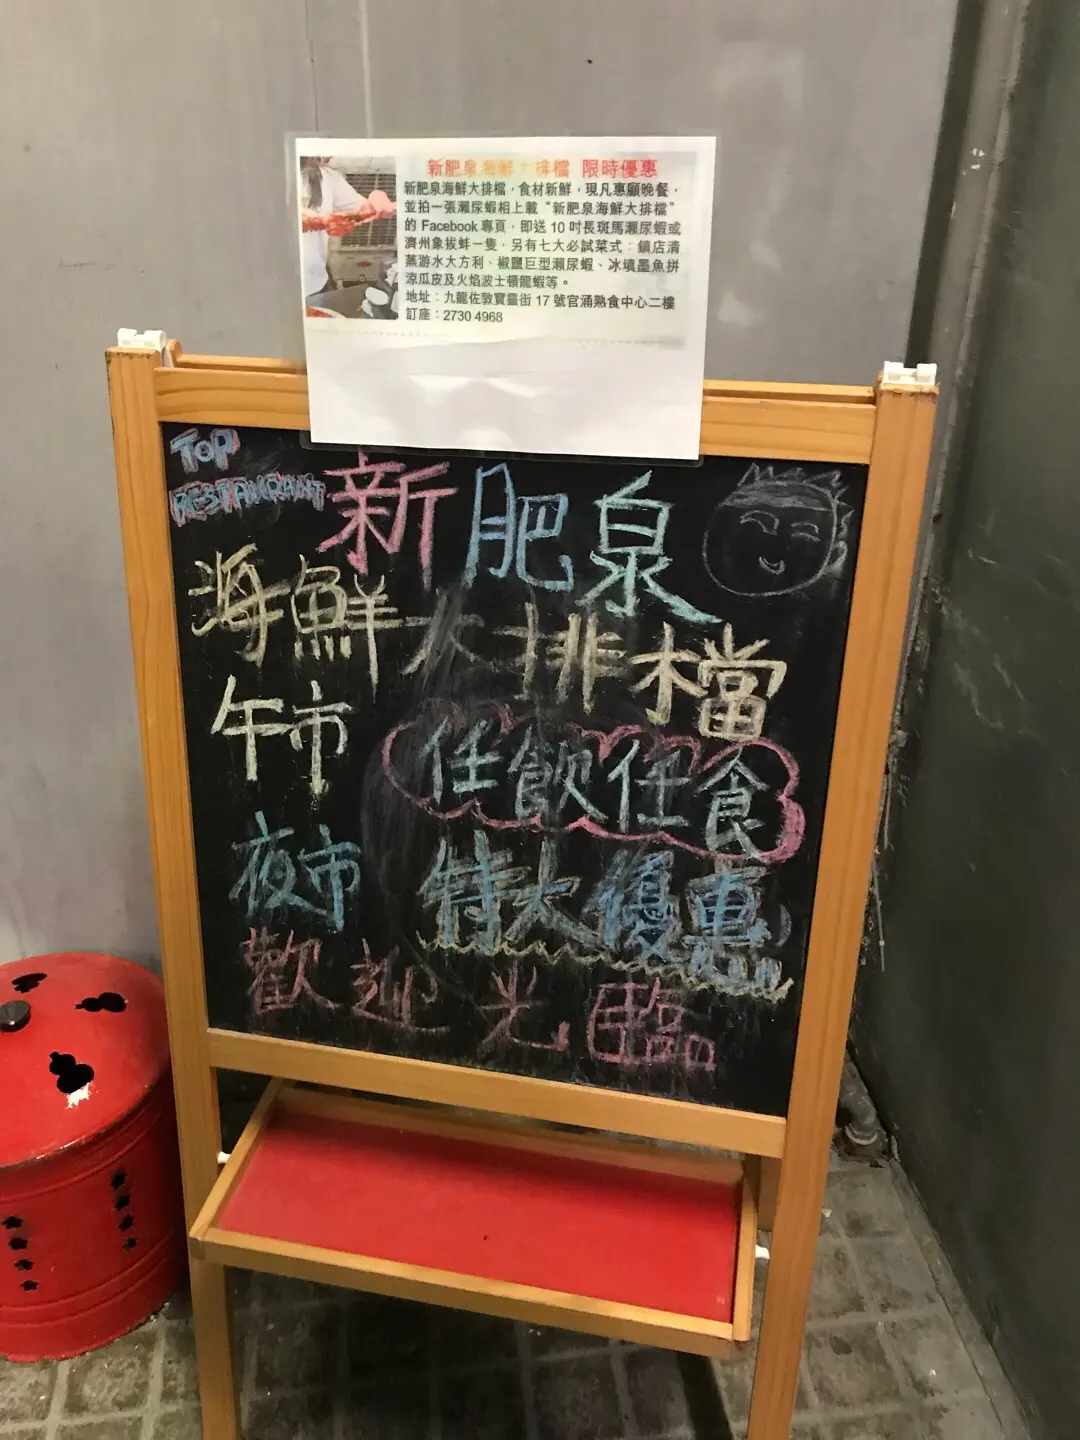 新肥泉海鮮大排檔 限時優惠
新肥泉海鮮大排檔，食材新鮮，現凡惠顧晚餐，
並拍一張瀨尿蝦相上載“新肥泉海鮮大排檔”
的 Facebook 專頁，即送 10 吋長斑馬瀨尿蝦或
濟州象拔蚌一隻，另有七大必試菜式：鎮店清
蒸游水大方利、椒鹽巨型瀨尿蝦、冰填墨魚拼
涼瓜皮及火焰波士頓龍蝦等。
地址：九龍佐敦寶靈街 17 號官涌熟食中心二樓
訂座：2730 4968
TOP
RESTAURANT
新肥泉
海鮮大排檔
午市 任飲任食
夜市 特大優惠
歡迎光臨